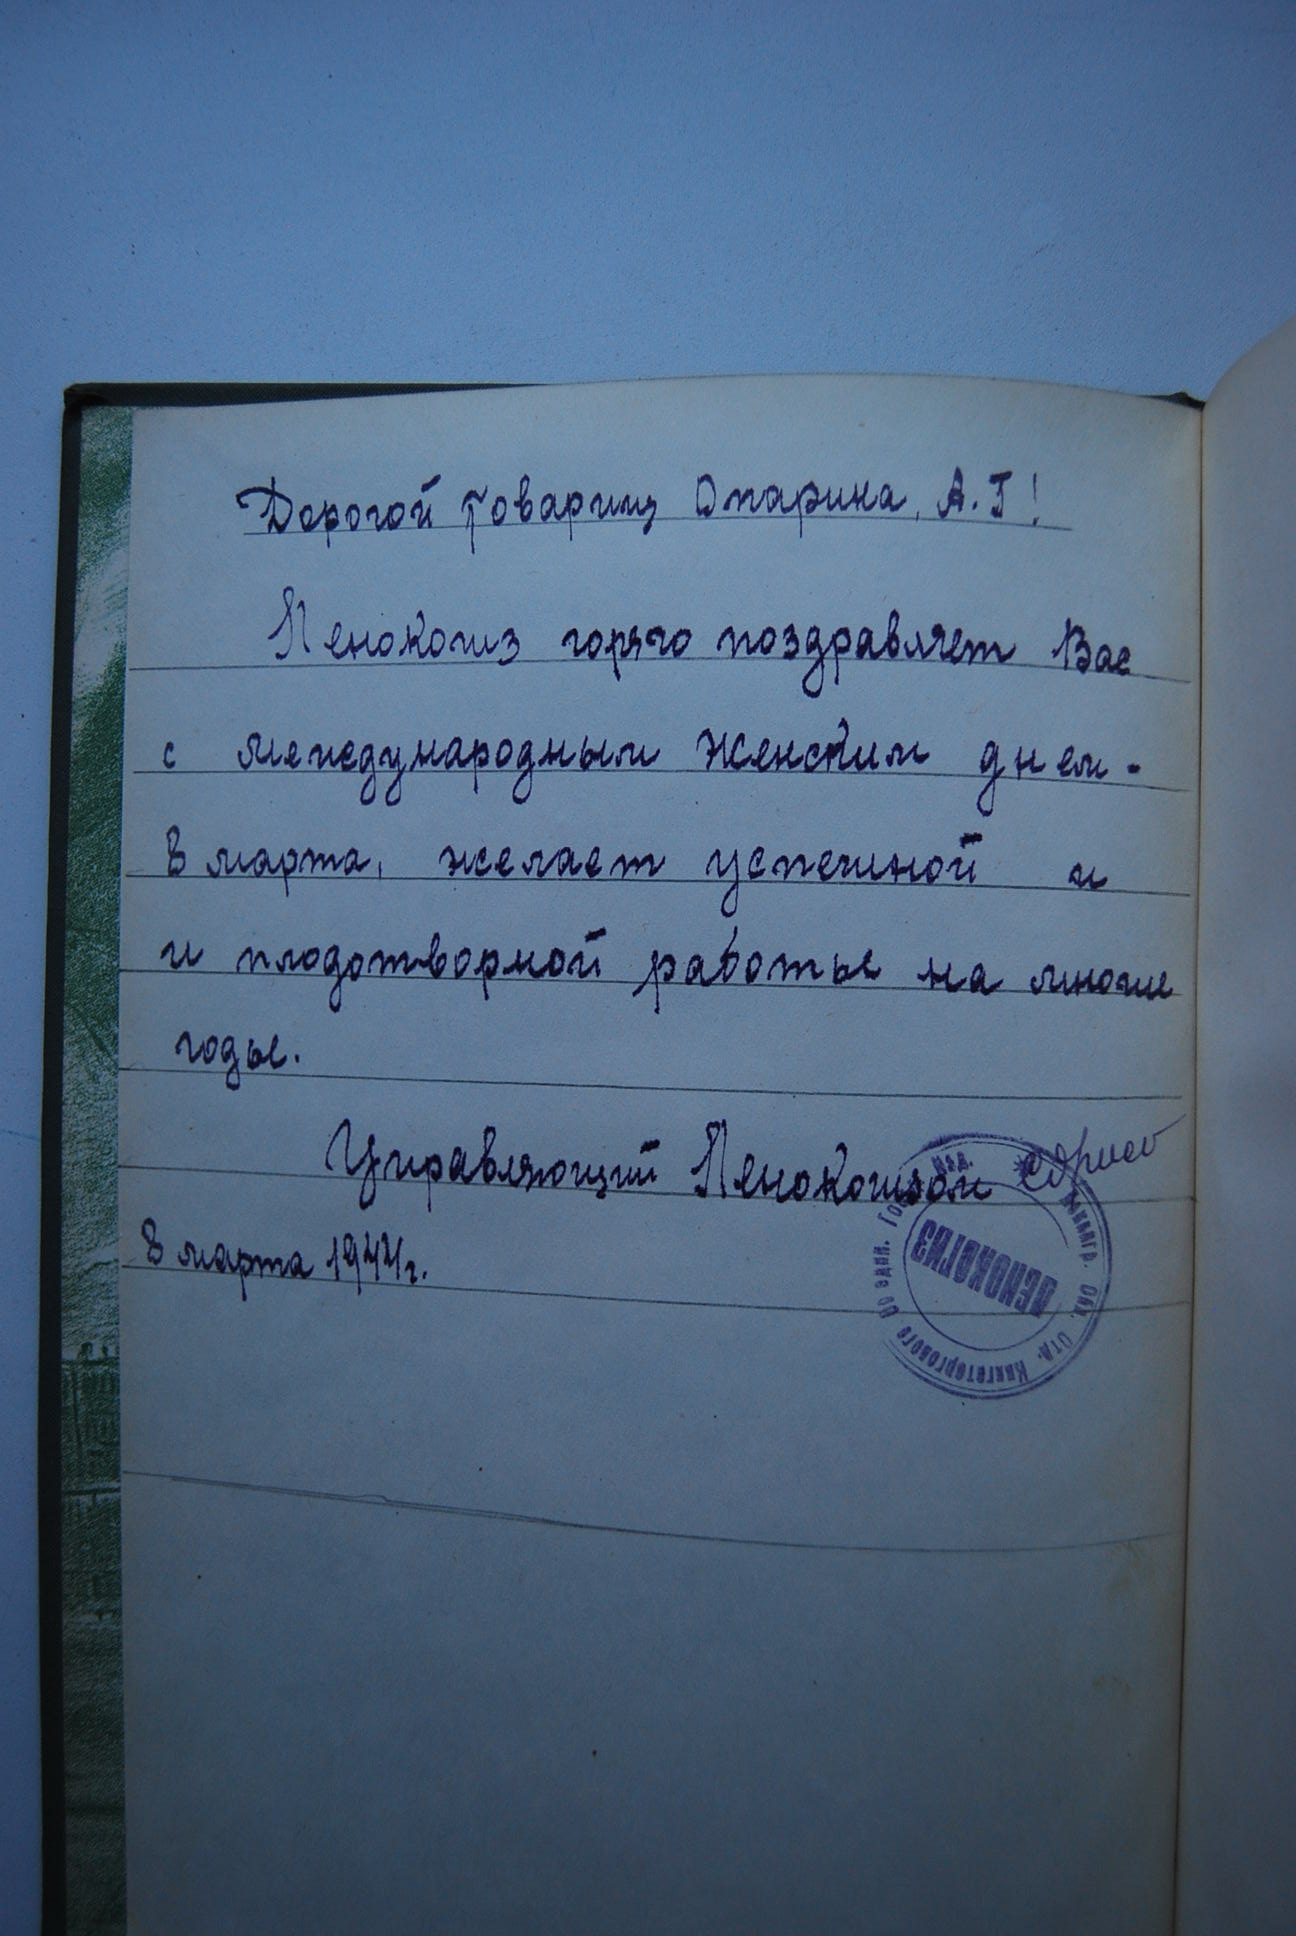 Дорогой товарищ Опарина, А.Г!
Ленокогиз горячо поздравляет Вас
с международным Женским днем -
8 марта, желает успешной и
и плодотворной работы на многие
годы.
Управляющий Ленокогизом
8 марта 1944 г.
Ленингр. Обл. Отд. Книготоргового Объедин. Гос. Изд.
ЛЕНОКОГИЗ